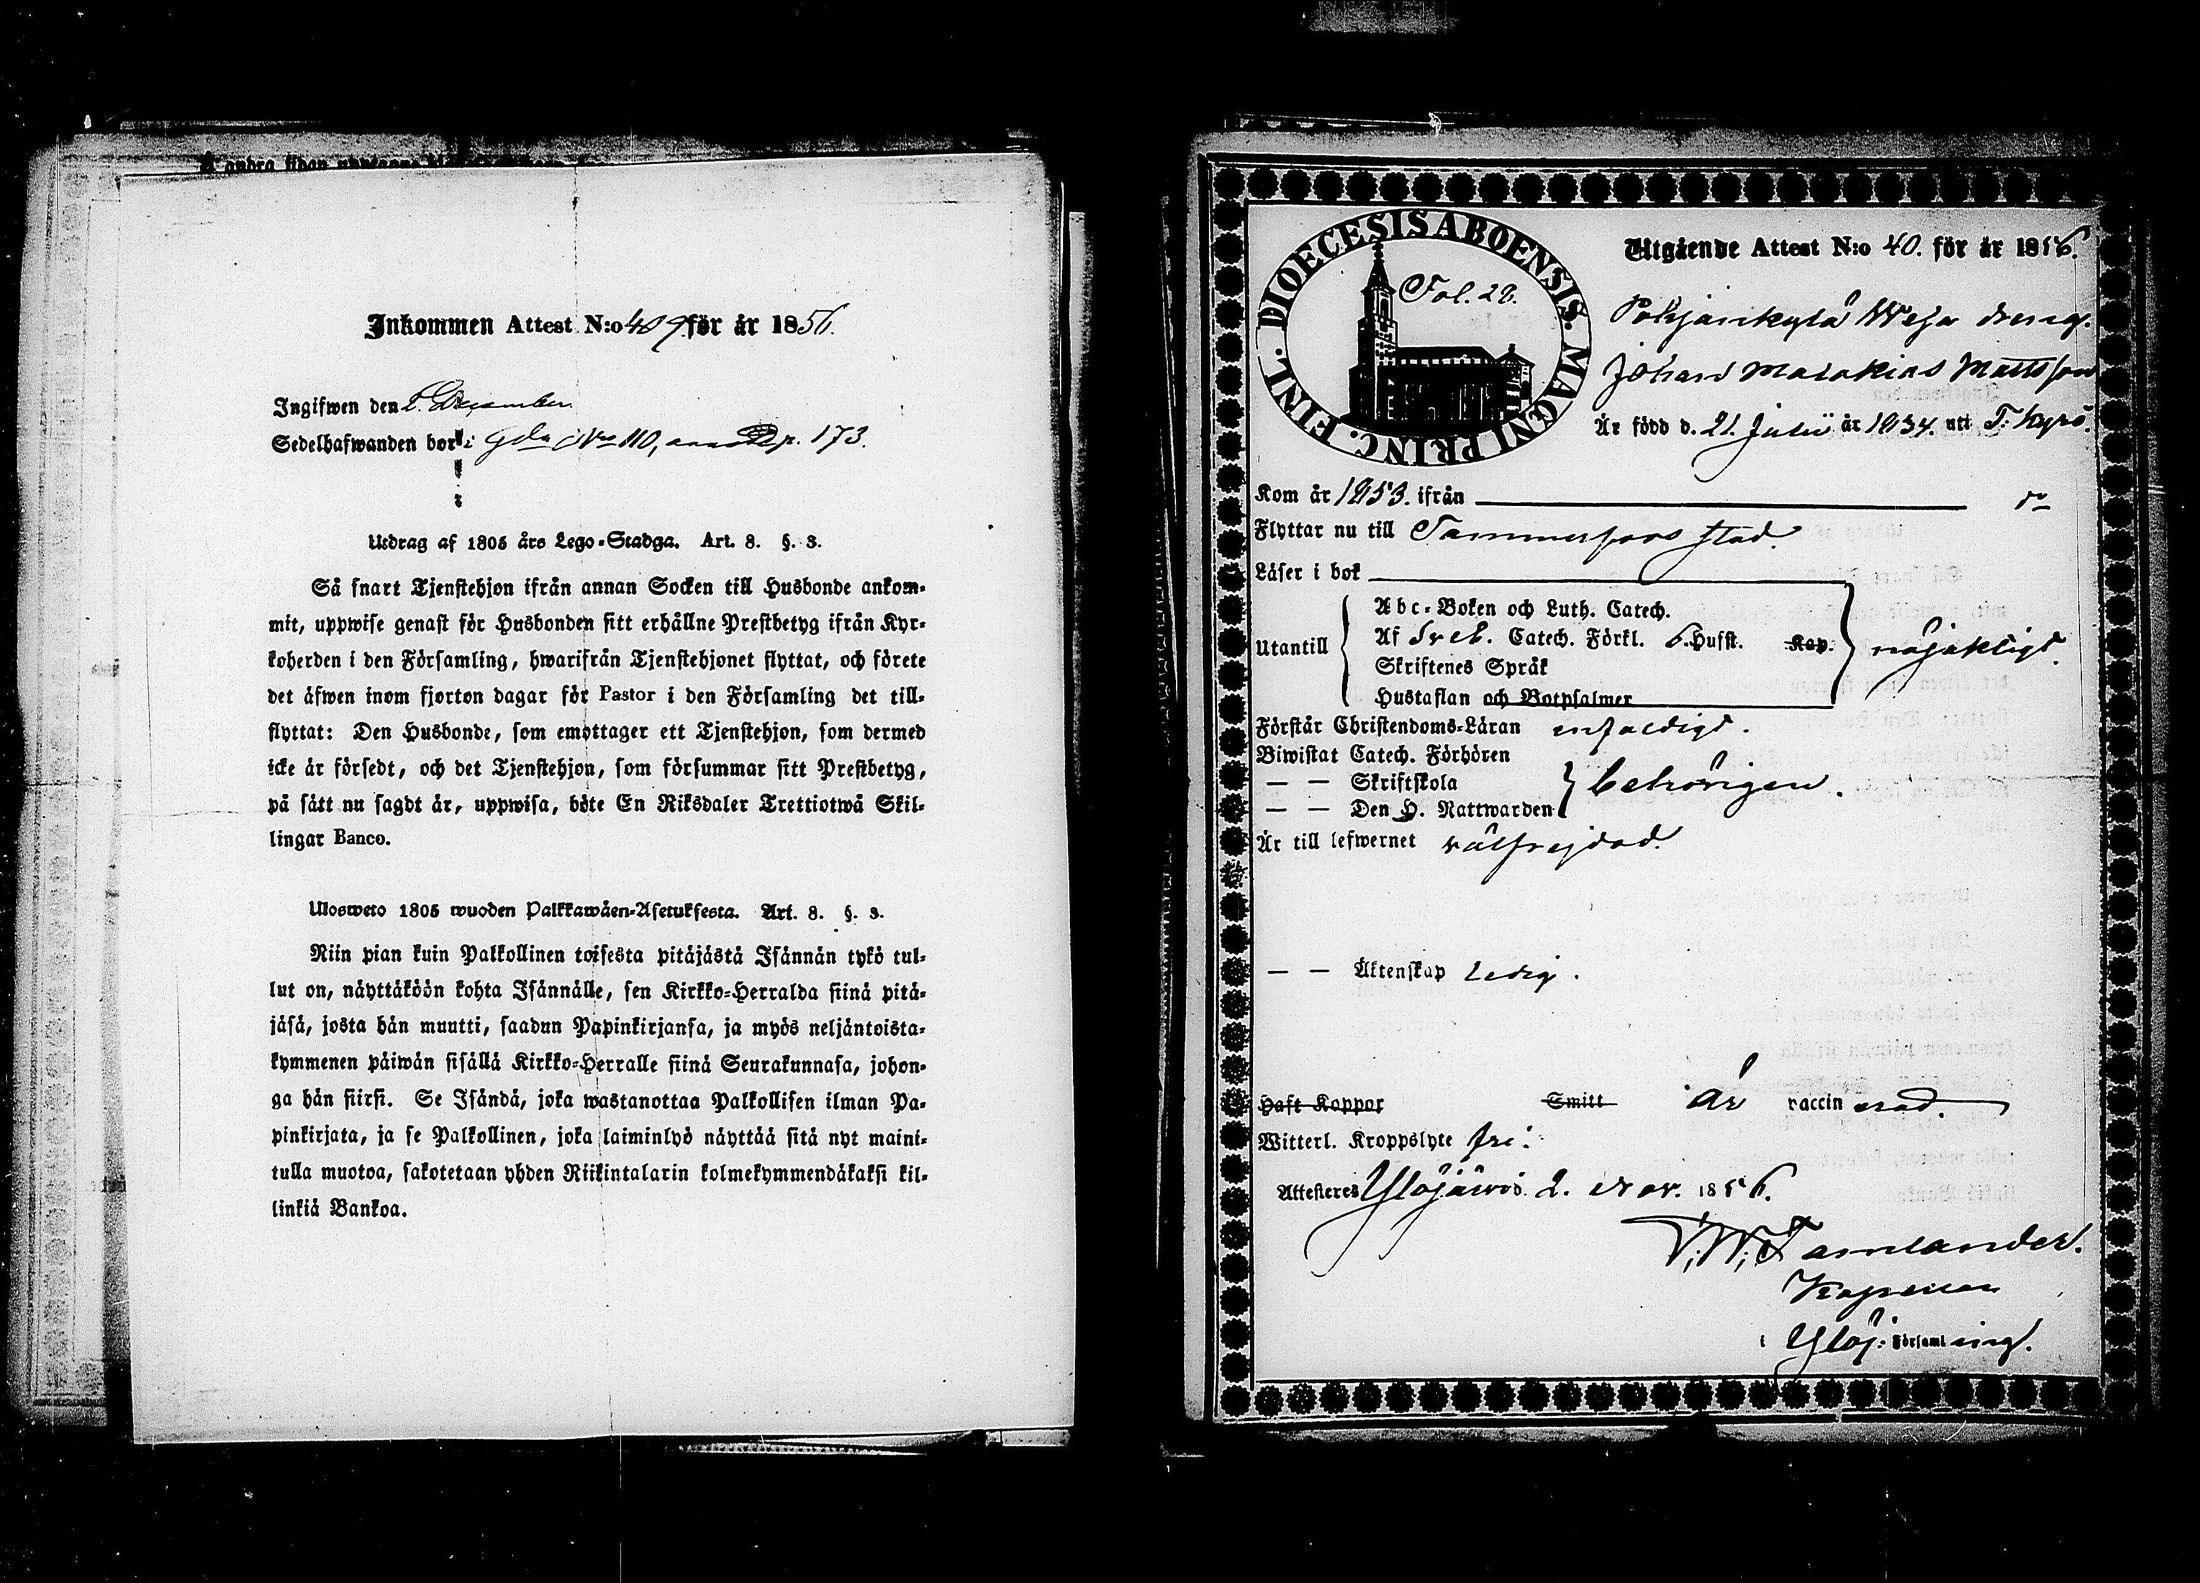 Inkommen Attest N:o 409 för år 1856.
Ingifwen den December
Sedelhafwanden bor i Gln No 110, p. 173.
Utdrag af 1805 års Lego-Stadga. Art. 8. §. 3.
Så snart Tjenstehjon ifrån annan Socken till Husbonde ankom-
mit, uppwise genast för Husbonden sitt erhållne Prestbetyg ifrån Kyr-
koherden i den Församling, hwarifrån Tjenstehjonet flyttat, och förete
det äfwen inom fjorton dagar för Pastor i den Församling det till-
flyttat: Den Husbonde, som emottager ett Tjenstehjon, som dermed
icke är försedt, och det Tjenstehjon, som försummar sitt Prestbetyg,
på sätt nu sagdt är, uppwisa, böte En Riksdaler Trettiotwå Skil-
lingar Banco.
Ulosweto 1805 wuoden Palkkawäen-Asetuksesta. Art. 8. §. 3.
Niin pian kuin Palkollinen toisesta pitäjästä Isännän tykö tul-
lut on, näyttäköön kohta Isännälle, sen Kirkko-Herralda siinä pitä-
jäsä, josta hän muutti, saadun Papinkirjansa, ja myös neljäntoista-
kymmenen päiwän sisällä Kirkko-Herralle siinä Seurakunnasa, johon-
ga hän siirsi. Se Isändä, joka wastanottaa Palkollisen ilman Pa-
pinkirjata, ja se Palkollinen, joka laiminlyö näyttää sitä nyt maini-
tulla muotoa, sakotetaan yhden Riikintalarin kolmekymmendäkaksi kil-
linkiä Bankoa.
DIOECESIS ABOENSIS. MAGNI PRINC. FINL.
Fol. 28.
Utgående Attest N:o 40. för år 1856.
Pohjankylä Weja dreng.
Johan Malakias Mattsson
Är född d. 21. Julii år 1834. uti T: Kyro.
Kom år 1853. ifrån do
Flyttar nu till Tammerfors stad.
Läser i bok
Abc-Boken och Luth. Catech.
Utantill Af Sveb. Catech. Förkl. 6. Hufst. Kap. nöjaktligt.
Skriftenes Språk
Hustaflan och Botpsalmer
Förstår Christendoms-Läran enfaldigt.
Biwistat Catech. Förhören
— — Skriftskola behörigen.
— — Den H. Nattwarden
Är till lefwernet välfrejdad.
— — Äktenskap ledig.
Haft Koppor Smitt är vaccinerad.
Witterl. Kroppslyte fri.
Attesteres Ylöjärvi d. 2. Nov. 1856.
V. W. Tamlander.
Kapellan
i Ylöj. Församling.